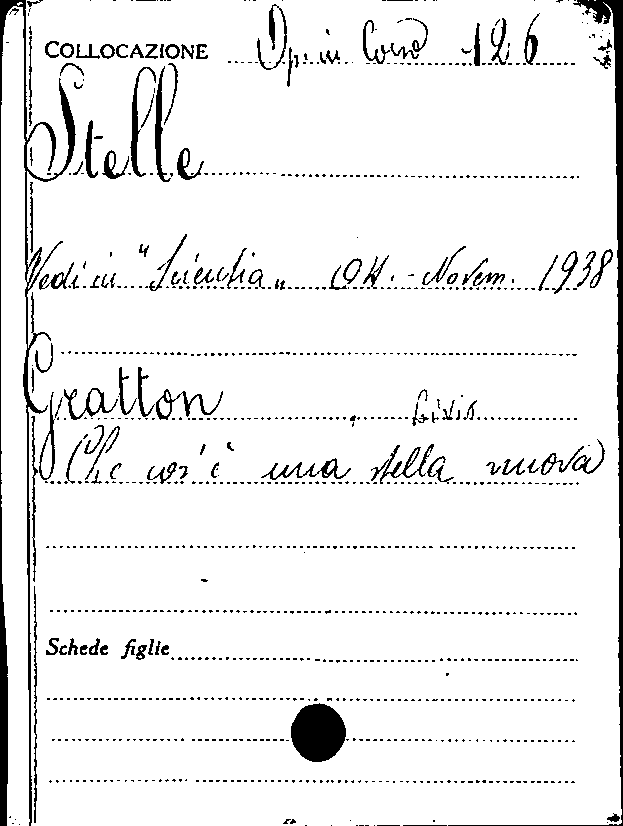 COLLOCAZIONE Op. in Corso 126
Stelle
Vedi in "Scientia„ Ott. - Novem. 1938
Gratton, Livio
Che cos'è una stella nuova
Schede figlie